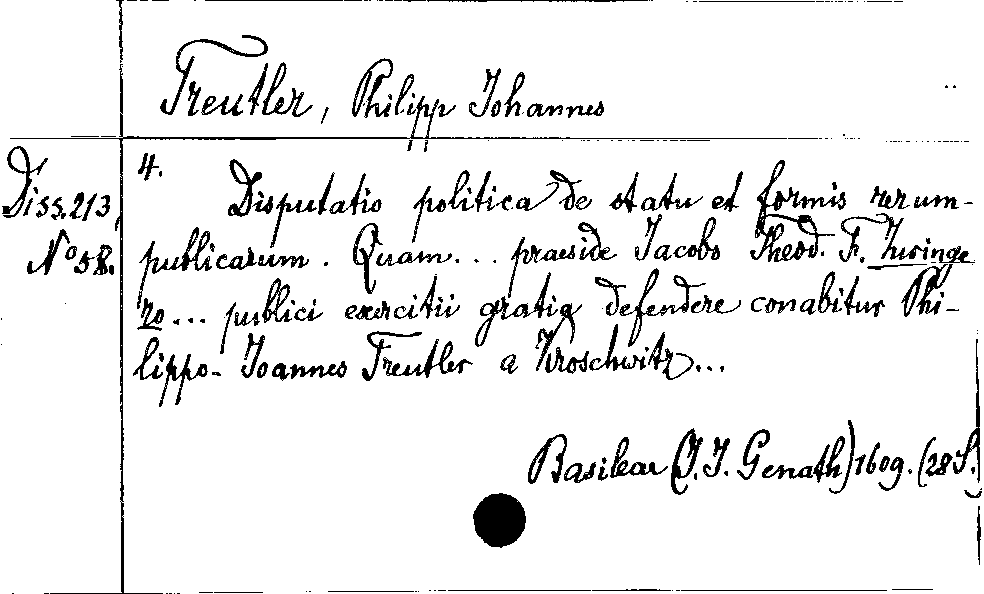 Treutler, Philipp Johannes
Diss. 213,
No 58.
4.
Disputatio politica de statu et formis rerum-
publicarum. Quam... praeside Jacobo Theod. F. Zuringe
ro... publici exercitii gratia defendere conabitur Phi-
lippo-Joannes Treutler a Kroschwitz...
Basileae (J. J. Genath) 1609. (28 S.)